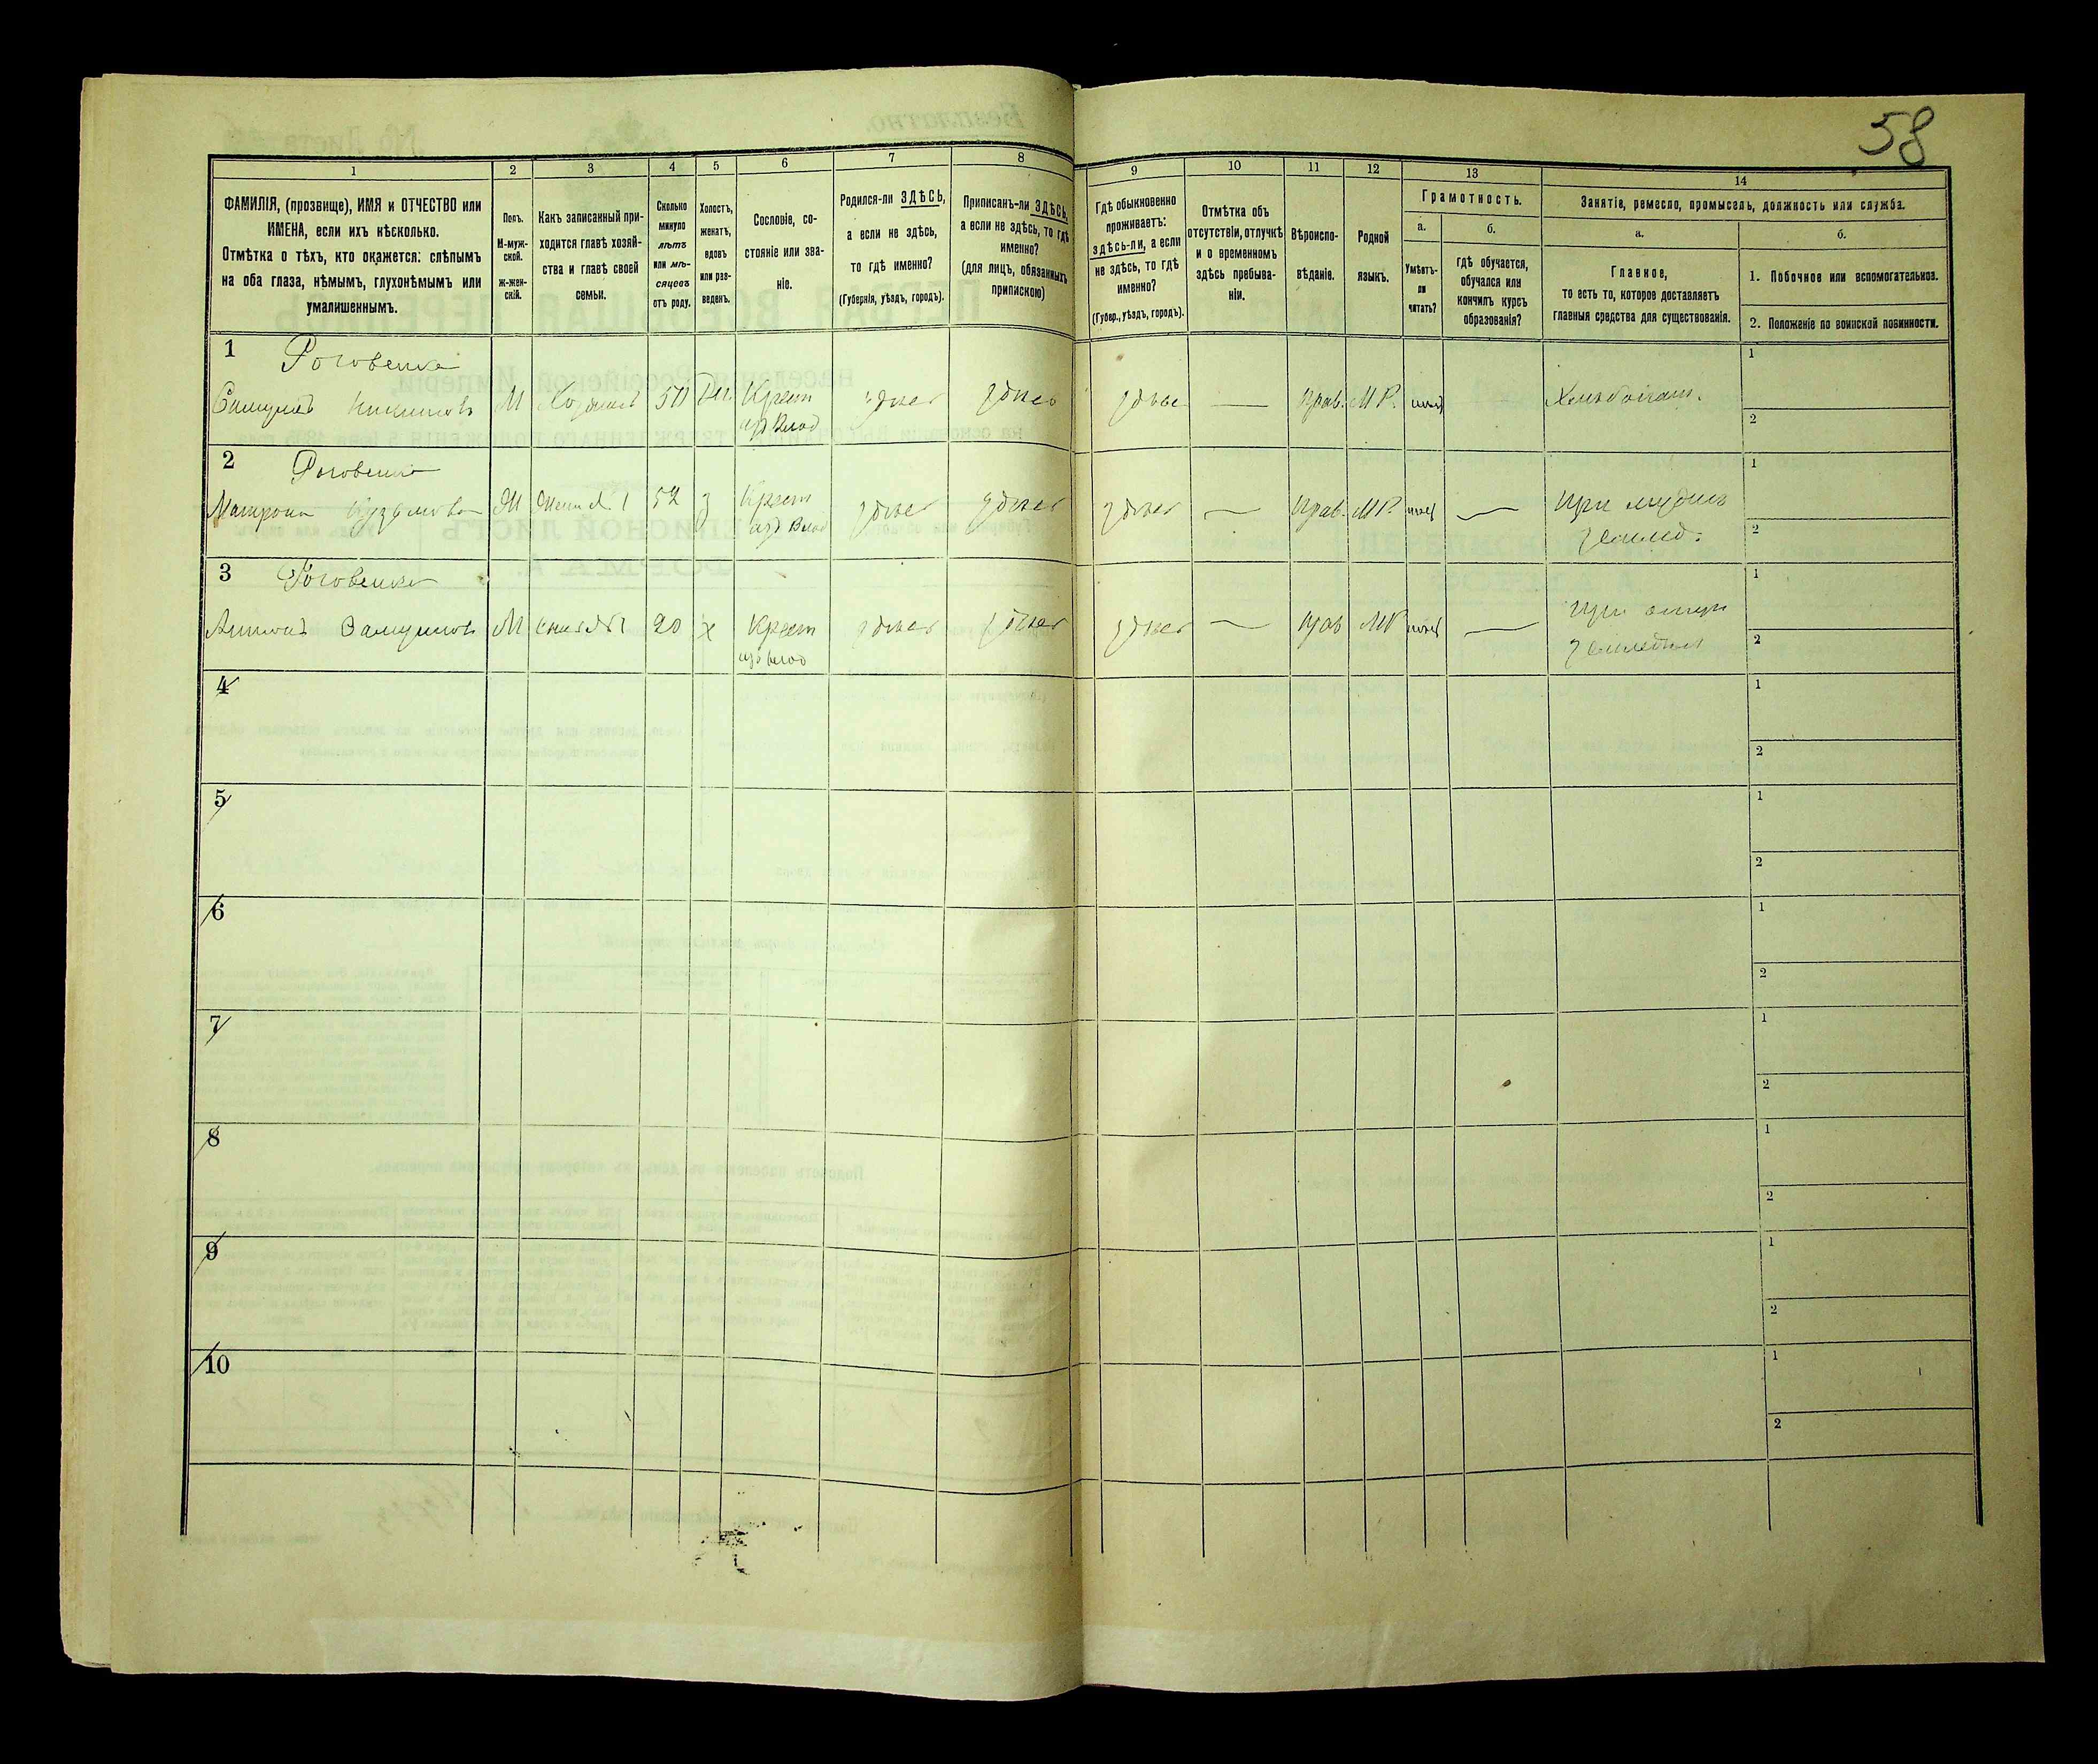 58
1
2
3
4
5
6
7
8
9
10
11
12
13
14
ФАМИЛІЯ, (прозвище), ИМЯ и ОТЧЕСТВО или
ИМЕНА, если ихъ нѣсколько.
Отмѣтка о тѣхъ, кто окажется: слѣпымъ
на оба глаза, нѣмымъ, глухонѣмымъ или
умалишеннымъ.
Полъ.
М-муж-
ской.
Ж-жен-
скій.
Какъ записанный при-
ходится главѣ хозяй-
ства и главѣ своей
семьи.
Сколько
минуло
лѣтъ
или мѣ-
сяцевъ
отъ роду.
Холостъ,
женатъ,
вдовъ
или раз-
веденъ.
Сословіе, со-
стояніе или зва-
ніе.
Родился-ли ЗДѢСЬ,
а если не здѣсь,
то гдѣ именно?
(Губернія, уѣздъ, городъ).
Приписанъ-ли ЗДѢСЬ,
а если не здѣсь, то гдѣ
именно?
(для лицъ, обязанныхъ
припискою)
Гдѣ обыкновенно
проживаетъ:
здѣсь-ли, а если
не здѣсь, то гдѣ
именно?
(Губер., уѣздъ, городъ).
Отмѣтка объ
отсутствіи, отлучкѣ
и о временномъ
здѣсь пребыва-
ніи.
Вѣроиспо-
вѣданіе.
Родной
языкъ.
Грамотность.
а.
Умѣетъ-
ли
читать?
б.
гдѣ обучается,
обучался или
кончилъ курсъ
образованія?
Занятіе, ремесло, промыселъ, должность или служба.
а.
Главное,
то есть то, которое доставляетъ
главныя средства для существованія.
б.
1. Побочное или вспомогательное.
2. Положеніе по воинской повинности.
1 Роговенко
М Хозяинъ 50 Крест здѣсь здѣсь здѣсь — Прав. МР. нѣтъ — Хлѣбопаш.
1
2
2 Роговенко
Матрона Кузьмова Жена №1 52 з Крест здѣсь здѣсь здѣсь — Прав. МР. нѣтъ — При
землед.
1
2
3 Роговенко
Антонъ М сынъ №1 20 х Крест здѣсь здѣсь здѣсь — Прав МР нѣтъ — при отцѣ
1
2
4
1
2
5
1
2
6
1
2
7
1
2
8
1
2
9
1
2
10
1
2